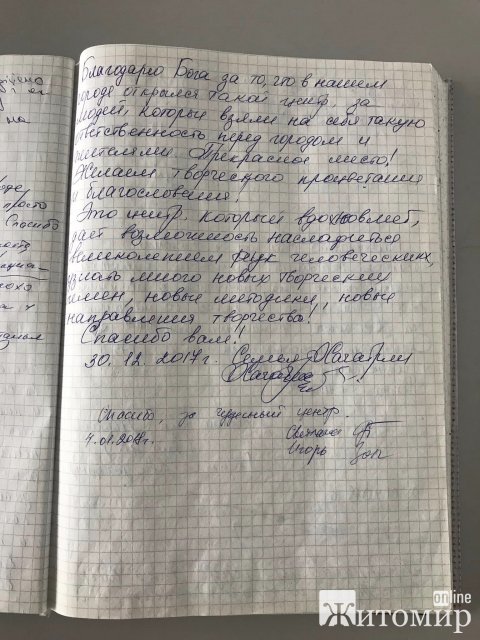 Благодарю Бога за то, что в нашем
городе открылся такой центр, за
людей, которые взяли на себя такую
ответственность перед городом и
жителями. Прекрасное место!
Желаем творческого процветания
и благословения!
Это центр, который вдохновляет,
даёт возможность насладиться
великолепием рук человеческих,
узнать много новых творческих
имен, новые методики, новые
направления творчества!
Спасибо вам!
30. 12. 2017г. Семья
Спасибо, за чудесный центр
4.01.2018г. Светлана
Игорь
просто
Спасибо
на
online
Житомир